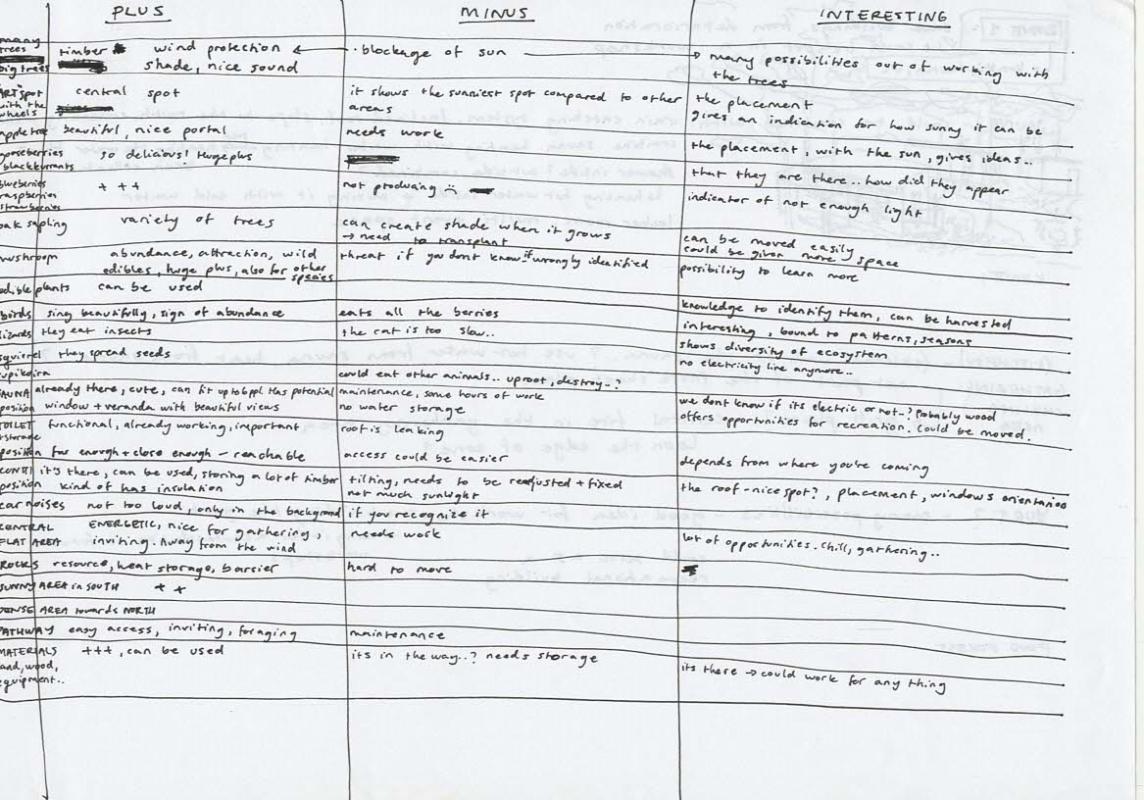 PLUS MINUS INTERESTING
many trees big trees timber wind protection ← blockage of sun → many possibilities out of working with
shade, nice sound the trees
ART spot with the wheels central spot it shows the sunniest spot compared to other areas the placement gives an indication for how sunny it can be
apple tree beautiful, nice portal needs work the placement, with the sun, gives ideas..
gooseberries blackcurrants so delicious! Huge plus that they are there.. how did they appear
blueberries raspberries strawberries + ++ not producing indicator of not enough light
oak sapling variety of trees can create shade when it grows
→ need to transplant can be moved easily
could be given more space
mushroom abundance, attraction, wild threat if you dont know if wrongly identified possibility to learn more
edibles, huge plus, also for other species
edible plants can be used
birds sing beautifully, sign of abundance eats all the berries knowledge to identify them, can be harvested
lizards they eat insects the cat is too slow.. interesting, bound to patterns, seasons
squirrel they spread seeds shows diversity of ecosystem
could eat other animals.. uproot, destroy..? no electricity line anymore..
SAUNA already there, cute, can fit up to 6 ppl has potential maintenance, some hours of work we dont know if its electric or not-? Probably wood
position window + veranda with beautiful views no water storage offers opportunities for recreation. Could be moved.
TOILET functional, already working, important roof is leaking
+storage
position far enough + close enough – reachable access could be easier depends from where you're coming
it's there, can be used, storing a lot of timber tilting, needs to be readjusted + fixed
position kind of has insulation not much sunlight the roof - nice spot?, placement, windows orientation
car noises not too loud, only in the background if you recognize it
CENTRAL ENERGETIC, nice for gathering, needs work lot of opportunities. Chill, gathering..
FLAT AREA inviting. Away from the wind
ROCKS resource, heat storage, barrier hard to move
SUNNY AREA in SOUTH + +
DENSE AREA towards NORTH
PATHWAY easy access, inviting, foraging maintenance
MATERIALS +++, can be used its in the way..? needs storage
sand, wood, its there → could work for any thing
equipment..